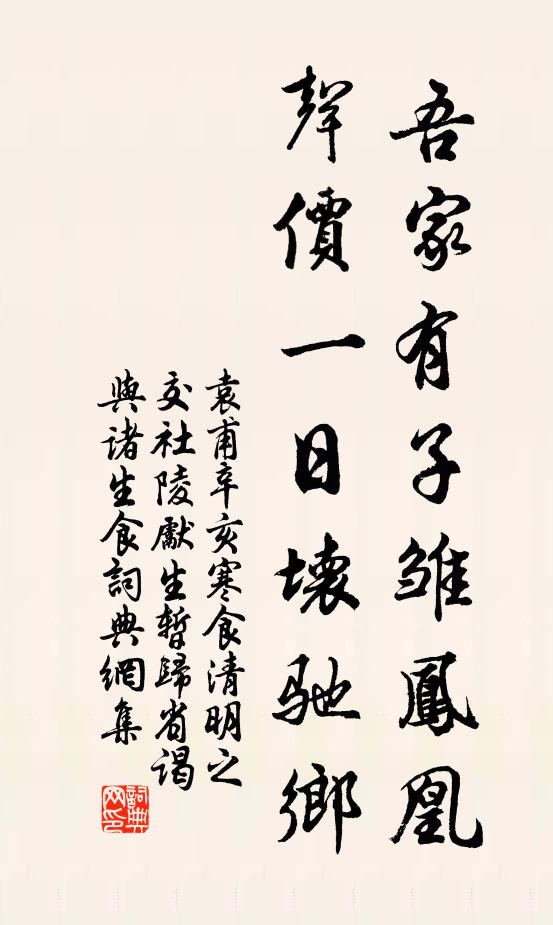 吾家有子雏鳳凰
聲價一日壞馳鄉
袁甫辛亥寒食清明之
交社陵獻生暫歸省謁
與诸生食詞典網集
詞典
网印